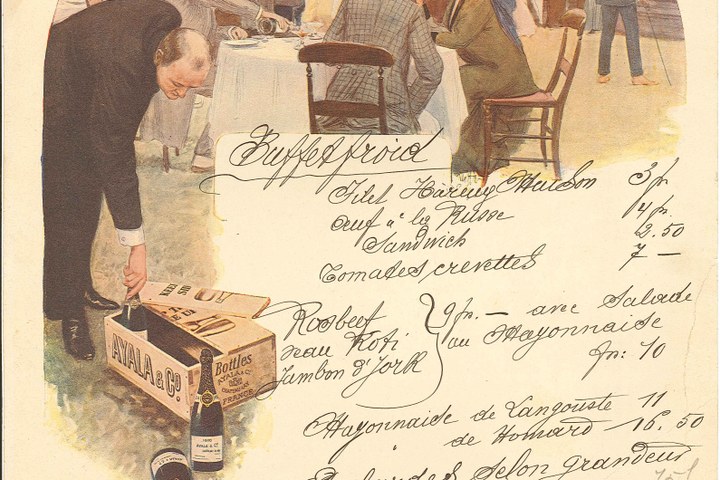 Buffet froid
Filet Hareng Maison 3 fr
Œuf à la Russe 4 fr.
Sandwich 2.50
Tomates crevettes 7 —
Rosbeef
Veau Roti
Jambon d'York
9 fr. — avec Salade
au Mayonnaise
fr: 10
Mayonnaise de Langouste 11
" de Homard — 16.50
selon grandeur
AYALA & Co
Bottles
AYALA & Co
FRANCE